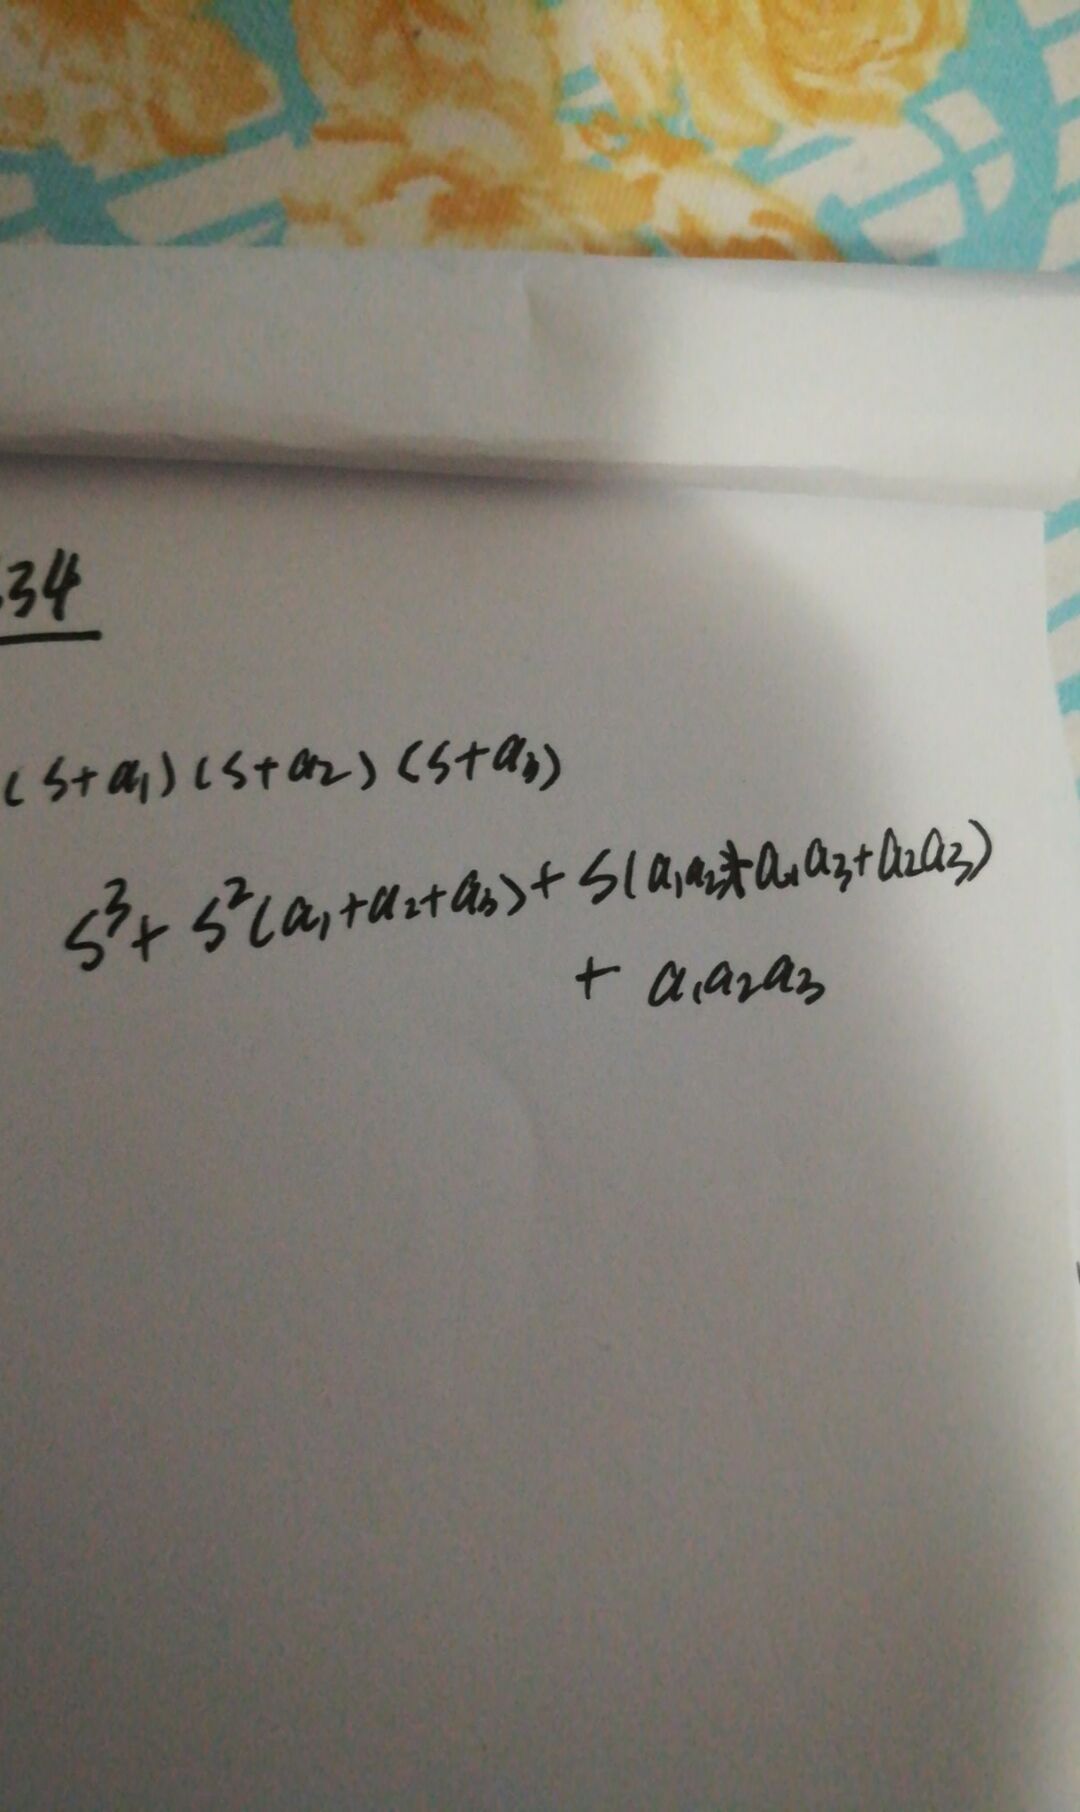 34
(s+a₁)(s+a₂)(s+a₃)
s³+ s²(a₁+a₂+a₃)+ s(a₁a₂+a₁a₃+a₂a₃)
+ a₁a₂a₃